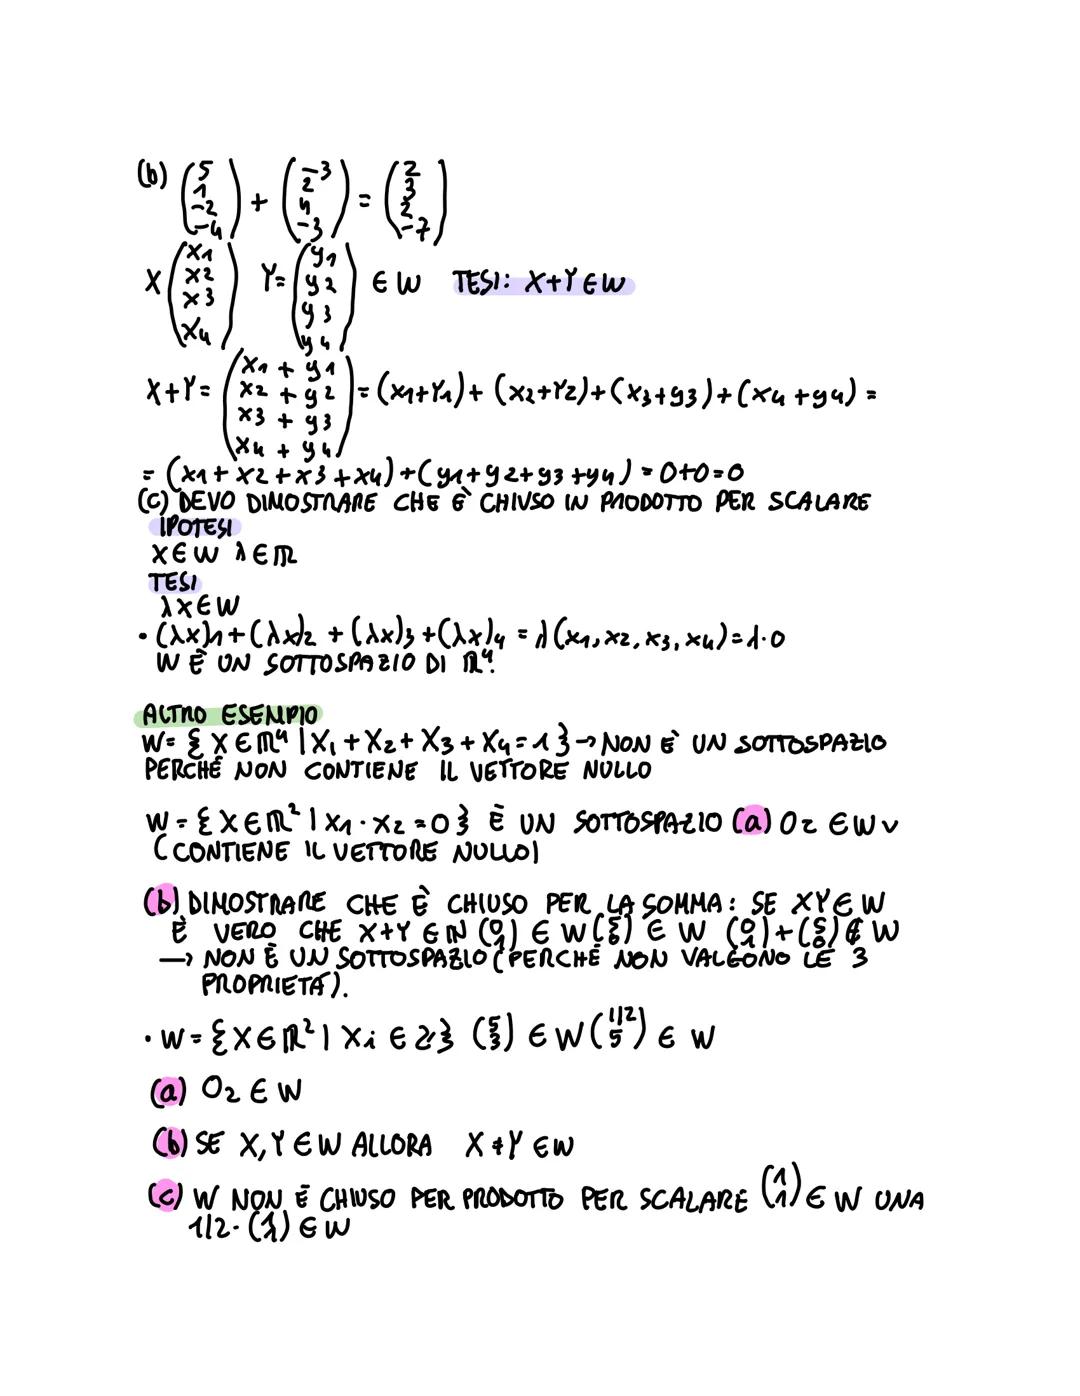 (b) (5 1 -2 -4) + (-3 2 4 -3) = (2 3 2 -7)
X (x1 x2 x3 x4) Y= (y1 y2 y3 y4) ∈ W TESI: X+Y ∈ W
X+Y= (x1 + y1 x2 + y2 x3 + y3 x4 + y4) = (x1+Y1)+ (x2+Y2)+(x3+y3)+(x4+y4) =
= (x1+x2+x3+x4)+(y1+y2+y3+y4) = 0+0=0
(C) DEVO DIMOSTRARE CHE È CHIUSO IN PRODOTTO PER SCALARE
IPOTESI
X∈W λ∈ℝ
TESI
λX∈W
• (λx)1+(λx)2 + (λx)3+(λx)4 = λ(x1,x2,x3,x4)=λ·0
W È UN SOTTOSPAZIO DI ℝ⁴.
ALTRO ESEMPIO
W= { X∈ℝ⁴ | X1+X2+X3+X4=1 } → NON È UN SOTTOSPAZIO
PERCHÉ NON CONTIENE IL VETTORE NULLO
W={X∈ℝ² | X1·X2=0} È UN SOTTOSPAZIO (a) O2 ∈ W v
(CONTIENE IL VETTORE NULLO)
(b) DIMOSTRARE CHE È CHIUSO PER LA SOMMA: SE XY∈W
È VERO CHE X+Y ∈ IN (0 1) ∈ W (5 0) ∈ W (0 1)+(5 0) ∉ W
→ NON È UN SOTTOSPAZIO (PERCHÉ NON VALGONO LE 3
PROPRIETÀ).
• W={X∈ℝ² | Xi ∈ ℤ} (5 3) ∈ W (1/2 5) ∈ W
(a) O2 ∈ W
(b) SE X,Y ∈ W ALLORA X+Y ∈W
(c) W NON È CHIUSO PER PRODOTTO PER SCALARE (1 1) ∈ W UNA
1/2·(1 1) ∈ W